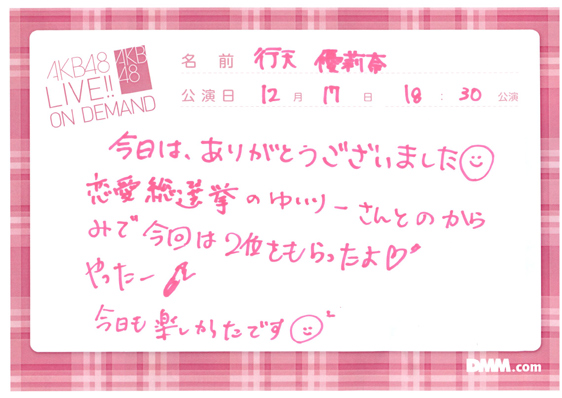 AKB48
LIVE!!
ON DEMAND
AKB
48
名前 行天 優莉奈
公演日 12月 17日 18:30 公演
今日は、ありがとうございました
恋愛総選挙のゆいりーさんとのから
みで今回は2位をもらったよ♡
やったー
今日も楽しかたです
DMM.com